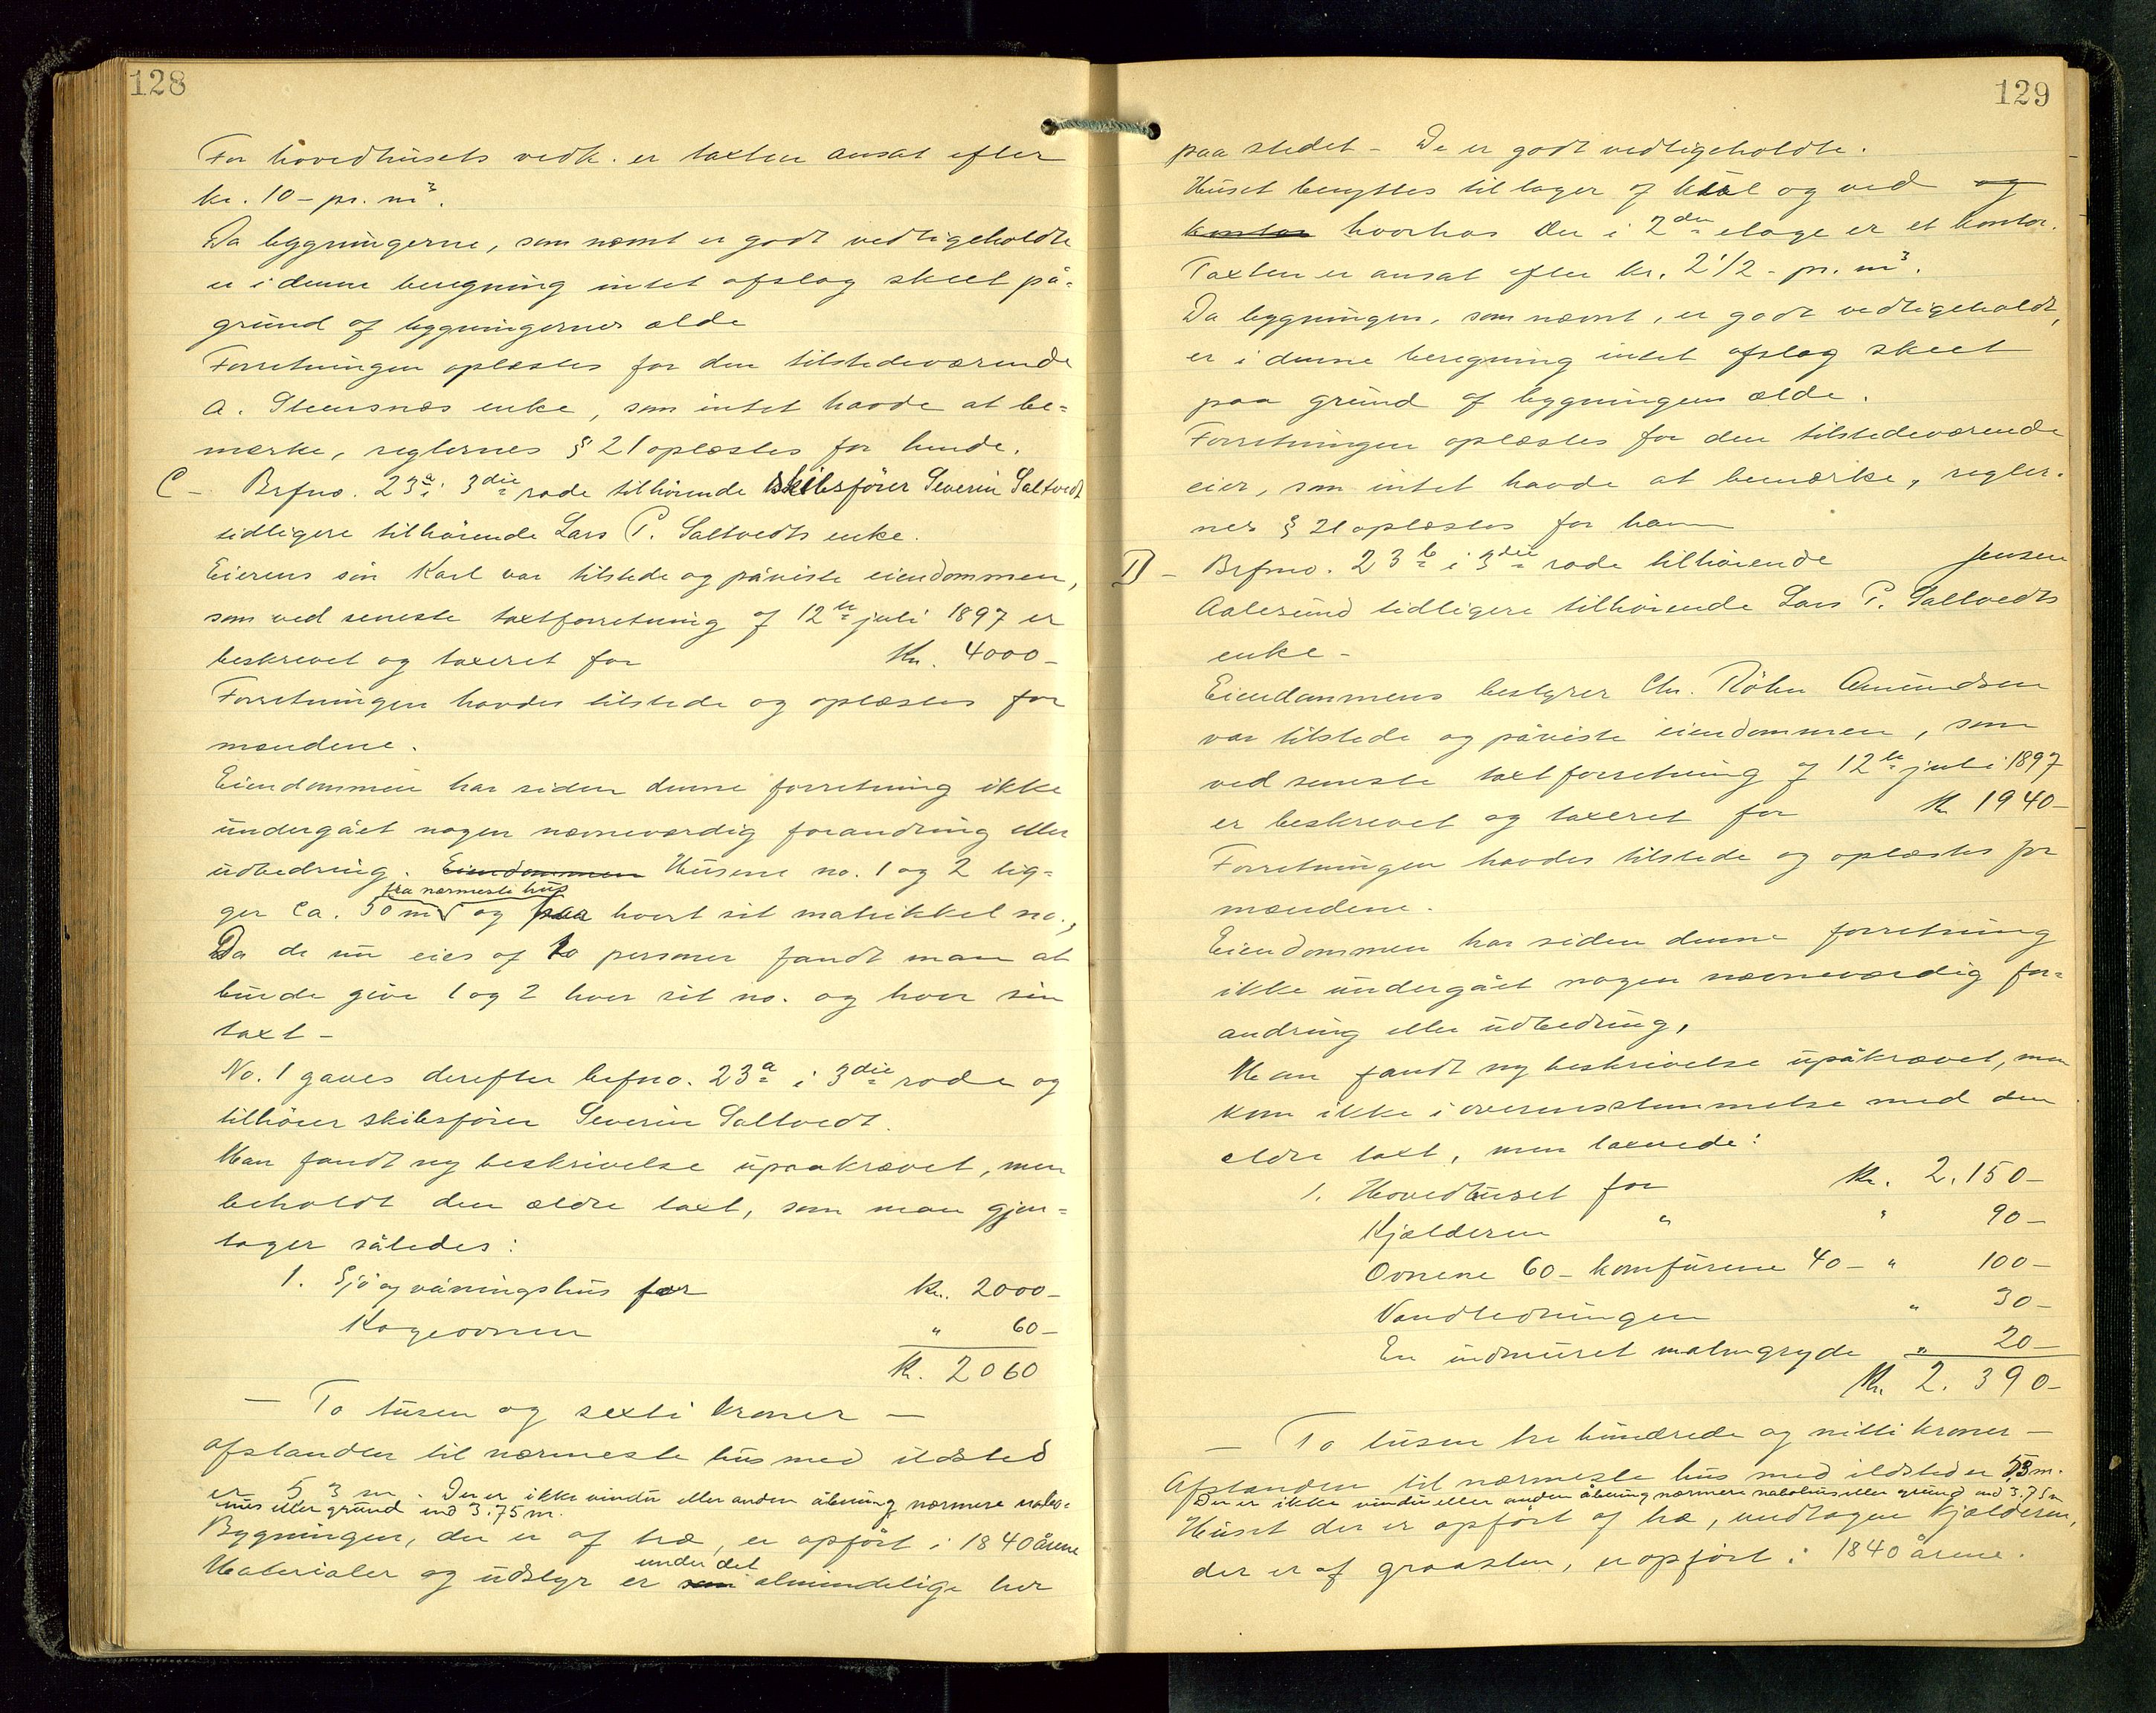 128
For hovedhusets vedk. er taxten ansat efter
kr. 10 - pr. m³.
Da bygningerne, som nævnt er godt vedligeholdte
er i denne beregning intet afslag skeet på-
grund af bygningernes ælde
Forretningen oplæstes for den tilstedeværende
A. Steensnæs enke, som intet havde at be=
mærke, reglernes § 21 oplæstes for hende.
C - Brfno. 23a i 3die rode tilhørende skibsfører Severin Saltvedt
tidligere tilhørende Lars P. Saltvedts enke.
Eierens søn Karl var tilstede og påviste eiendommen,
som ved seneste taxtforretning af 12te juli 1897 er
beskrevet og taxeret for Kr. 4000-
Forretningen havdes tilstede og oplæstes for
mændene.
Eiendommen har siden denne forretning ikke
undergået nogen nævneværdig forandring eller
udbedring. Eiendommen Husene no. 1 og 2 lig=
fra nærmeste hus
ger ca. 50 m og paa hvert sit matrikkel no.,
Da de nu eies af to personer fandt man at
burde give 1 og 2 hver sit no. og hver sin
taxt -
No. 1 gaves derefter brfno. 23a i 3die rode og
tilhører skibsfører Severin Saltvedt.
Man fandt ny beskrivelse upaakrævet, men
beholdt den ældre taxt, som man gjen=
tager således:
1. Sjø og våningshus for kr. 2000-
Kogeovnen " 60-
Kr. 2060
- To tusen og sexti kroner -
Afstanden til nærmeste hus med ildsted
er 5,3 m. Der er ikke vindu eller anden åbning nærmere nabo=
hus eller grund end 3.75 m.
Bygningen, der er af træ, er opført i 1840 årene
under det
Materialer og udstyr er som almindelige her
129
paa stedet - De er godt vedligeholdte.
Huset benyttes til lager af kul og ved og
kontor hvorhos der i 2den etage er et kontor.
Taxten er ansat efter kr. 2 1/2 - pr. m³.
Da bygningen, som nævnt, er godt vedligeholdt,
er i denne beregning intet afslag skeet
paa grund af bygningens ælde.
Forretningen oplæstes for den tilstedeværende
eier, som intet havde at bemærke, regler-
nes § 21 oplæstes for ham
D - Brfno. 23b i 3die rode tilhørende Jensen
Aalesund tidligere tilhørende Lars P. Saltvedts
enke -
Eiendommens bestyrer Chr. Røhn Amundsen
var tilstede og påviste eiendommen, som
ved seneste taxtforretning af 12te juli 1897
er beskrevet og taxeret for Kr 1940-
Forretningen havdes tilstede og oplæstes for
mændene.
Eiendommen har siden denne forretning
ikke undergået nogen nævneværdig for=
andring eller udbedring,
Man fandt ny beskrivelse upåkrævet, men
kom ikke i overensstemmelse med den
ældre taxt, men taxerede:
1. Hovedhuset for Kr. 2.150-
Kjælderen " " 90-
Ovnene 60 - komfurene 40 - " 100-
Vandledningen " 30-
En indmuret malmgryde " 20-
Kr. 2.390-
- To tusen tre hundrede og nitti kroner -
Afstanden til nærmeste hus med ildsted er 5,3 m.
Der er ikke vindu eller anden åbning nærmere nabohus eller grund end 3.75 m
Huset der er opført af træ, undtagen kjælderen,
der er af graasten, er opført i 1840 årene.